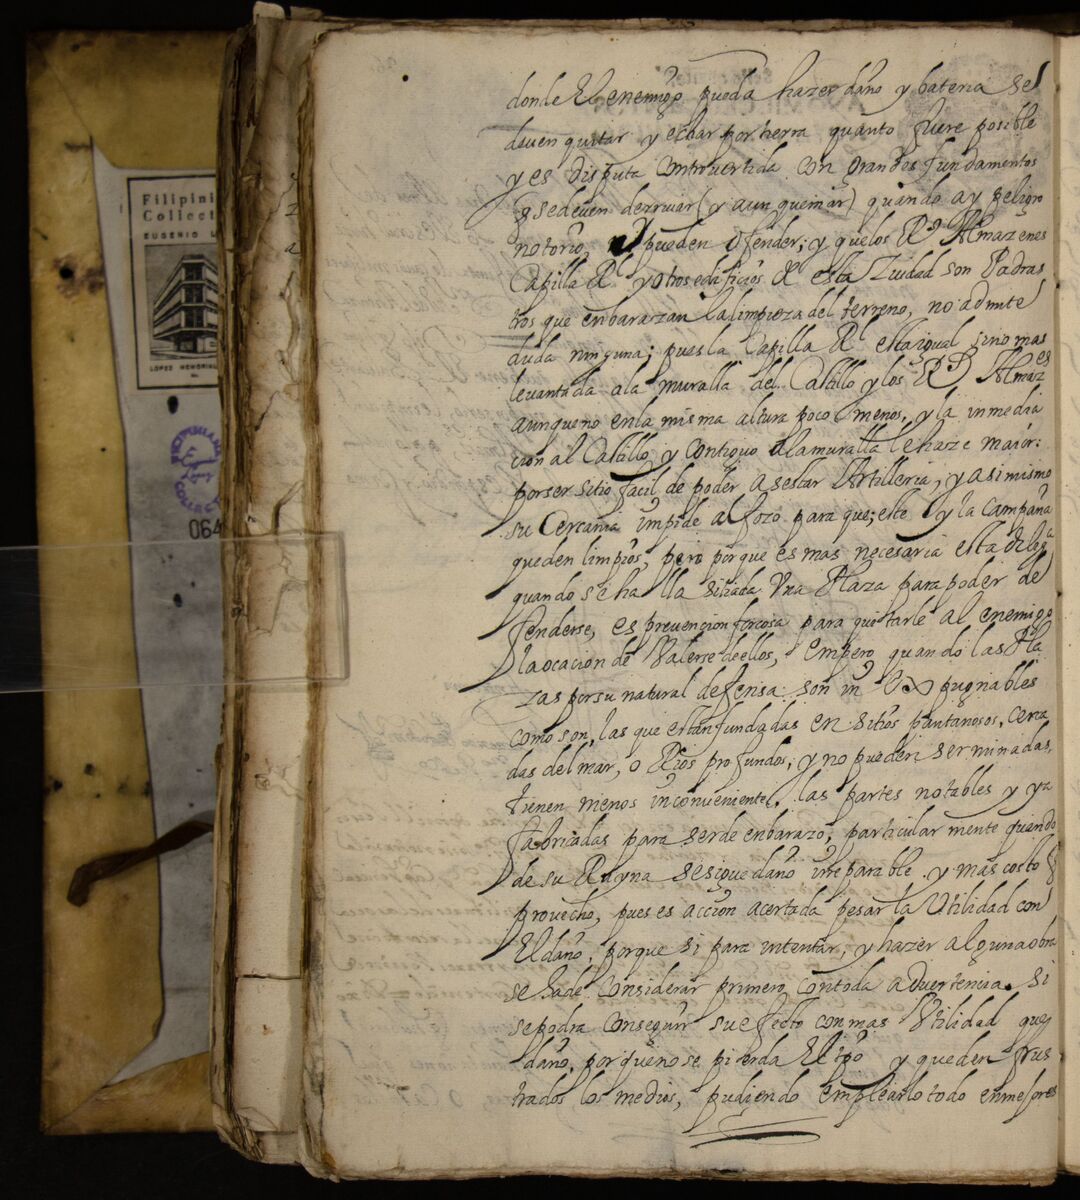 Filipini
Collect
EUGENIO L
LOPEZ MEMORIAL
FILIPINIANA
COLLECT
064
donde El enemigo pueda hazer daño y bateria se
deven quitar y echar por tierra quanto fuere posible
y es disputa controvertida con grandes fundamentos
q se deven derrivar (y aun queimar) quando ay peligro
notorio, pueden ofender; y que los Rs Almazenes
Capilla Rl y otros edificios de esta Ziudad son Padras
tros que enbarazan la limpieza del terreno, no admite
duda ninguna; pues la Capilla Rl esta igual sino mas
levantada ala muralla del Castillo y los Rs Almazes
aunque no en la misma altura poco menos, y la inmedia
cion al Castillo y contiguo ala muralla le haze maior:
por ser sitio facil de poder asestar Artilleria, y asi mismo
su Cercania impide al fozo para que este y la Campaña
queden limpios, pero porque es mas necesaria esta dilega
quando se halla sitiada Vna Plaza para poder de
fenderse, es prevencion forcosa para quitarle al enemigo
la ocacion de Valerse de ellos, empero quando las Pla
zas por su natural defensa son in Expugnables
como son, las que estan fundadas en sitios pantanosos, cerca
das del mar, o Rios profundos, y no pueden ser minadas,
tienen menos inconveniente, las partes notables y ya
fabricadas para ser de enbarazo, particular mente quando
de su Ruyna se sigue daño irreparable y mas costo q
provecho, pues es accion acertada pesar la Vtilidad con
El daño, porque si para intentar, y hazer alguna obra
se ha de considerar primero con toda advertencia si
se podra conseguir su efecto con mas Vtilidad que
daño, por que no se pierda El tpo y queden frus
trados los medios, pudiendo emplearlo todo en mejores